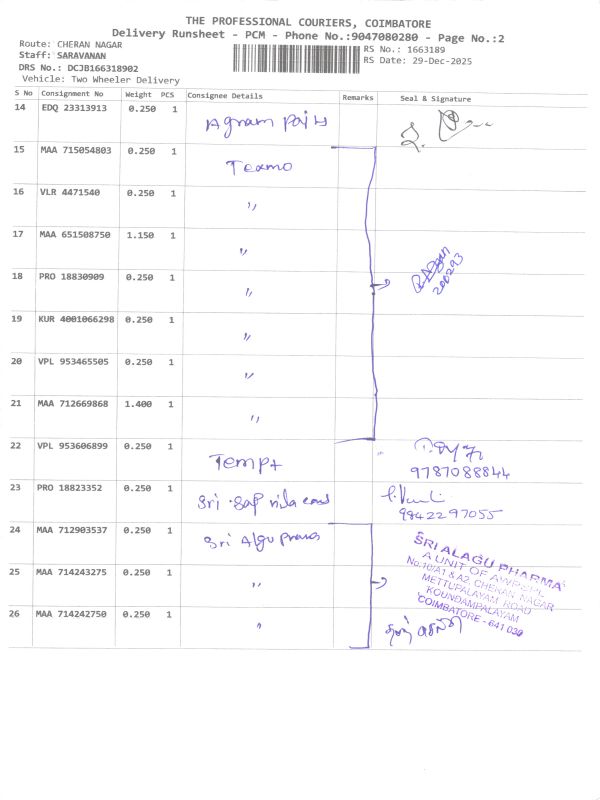 THE PROFESSIONAL COURIERS, COIMBATORE
Delivery Runsheet - PCM - Phone No.:9047080280 - Page No.:2
Route: CHERAN NAGAR
RS No.: 1663189
Staff: SARAVANAN
RS Date: 29-Dec-2025
DRS No.: DCJB166318902
Vehicle: Two Wheeler Delivery
S No Consignment No Weight PCS Consignee Details Remarks Seal & Signature
14 EDQ 23313913 0.250 1
15 MAA 715054803 0.250 1 Texmo
16 VLR 4471540 0.250 1 "
17 MAA 651508750 1.150 1 "
18 PRO 18830909 0.250 1 "
200293
19 KUR 4001066298 0.250 1 "
20 VPL 953465505 0.250 1 "
21 MAA 712669868 1.400 1 "
22 VPL 953606899 0.250 1 Tempt
9787088844
23 PRO 18823352 0.250 1 Sri
9942297055
24 MAA 712903537 0.250 1 Sri Algu
25 MAA 714243275 0.250 1 "
26 MAA 714242750 0.250 1 "
SRI ALAGU PHARMA
A UNIT OF AWPSPL
No.10/A1 & A2, CHERAN NAGAR
METTUPALAYAM ROAD
KOUNDAMPALAYAM
COIMBATORE - 641 030